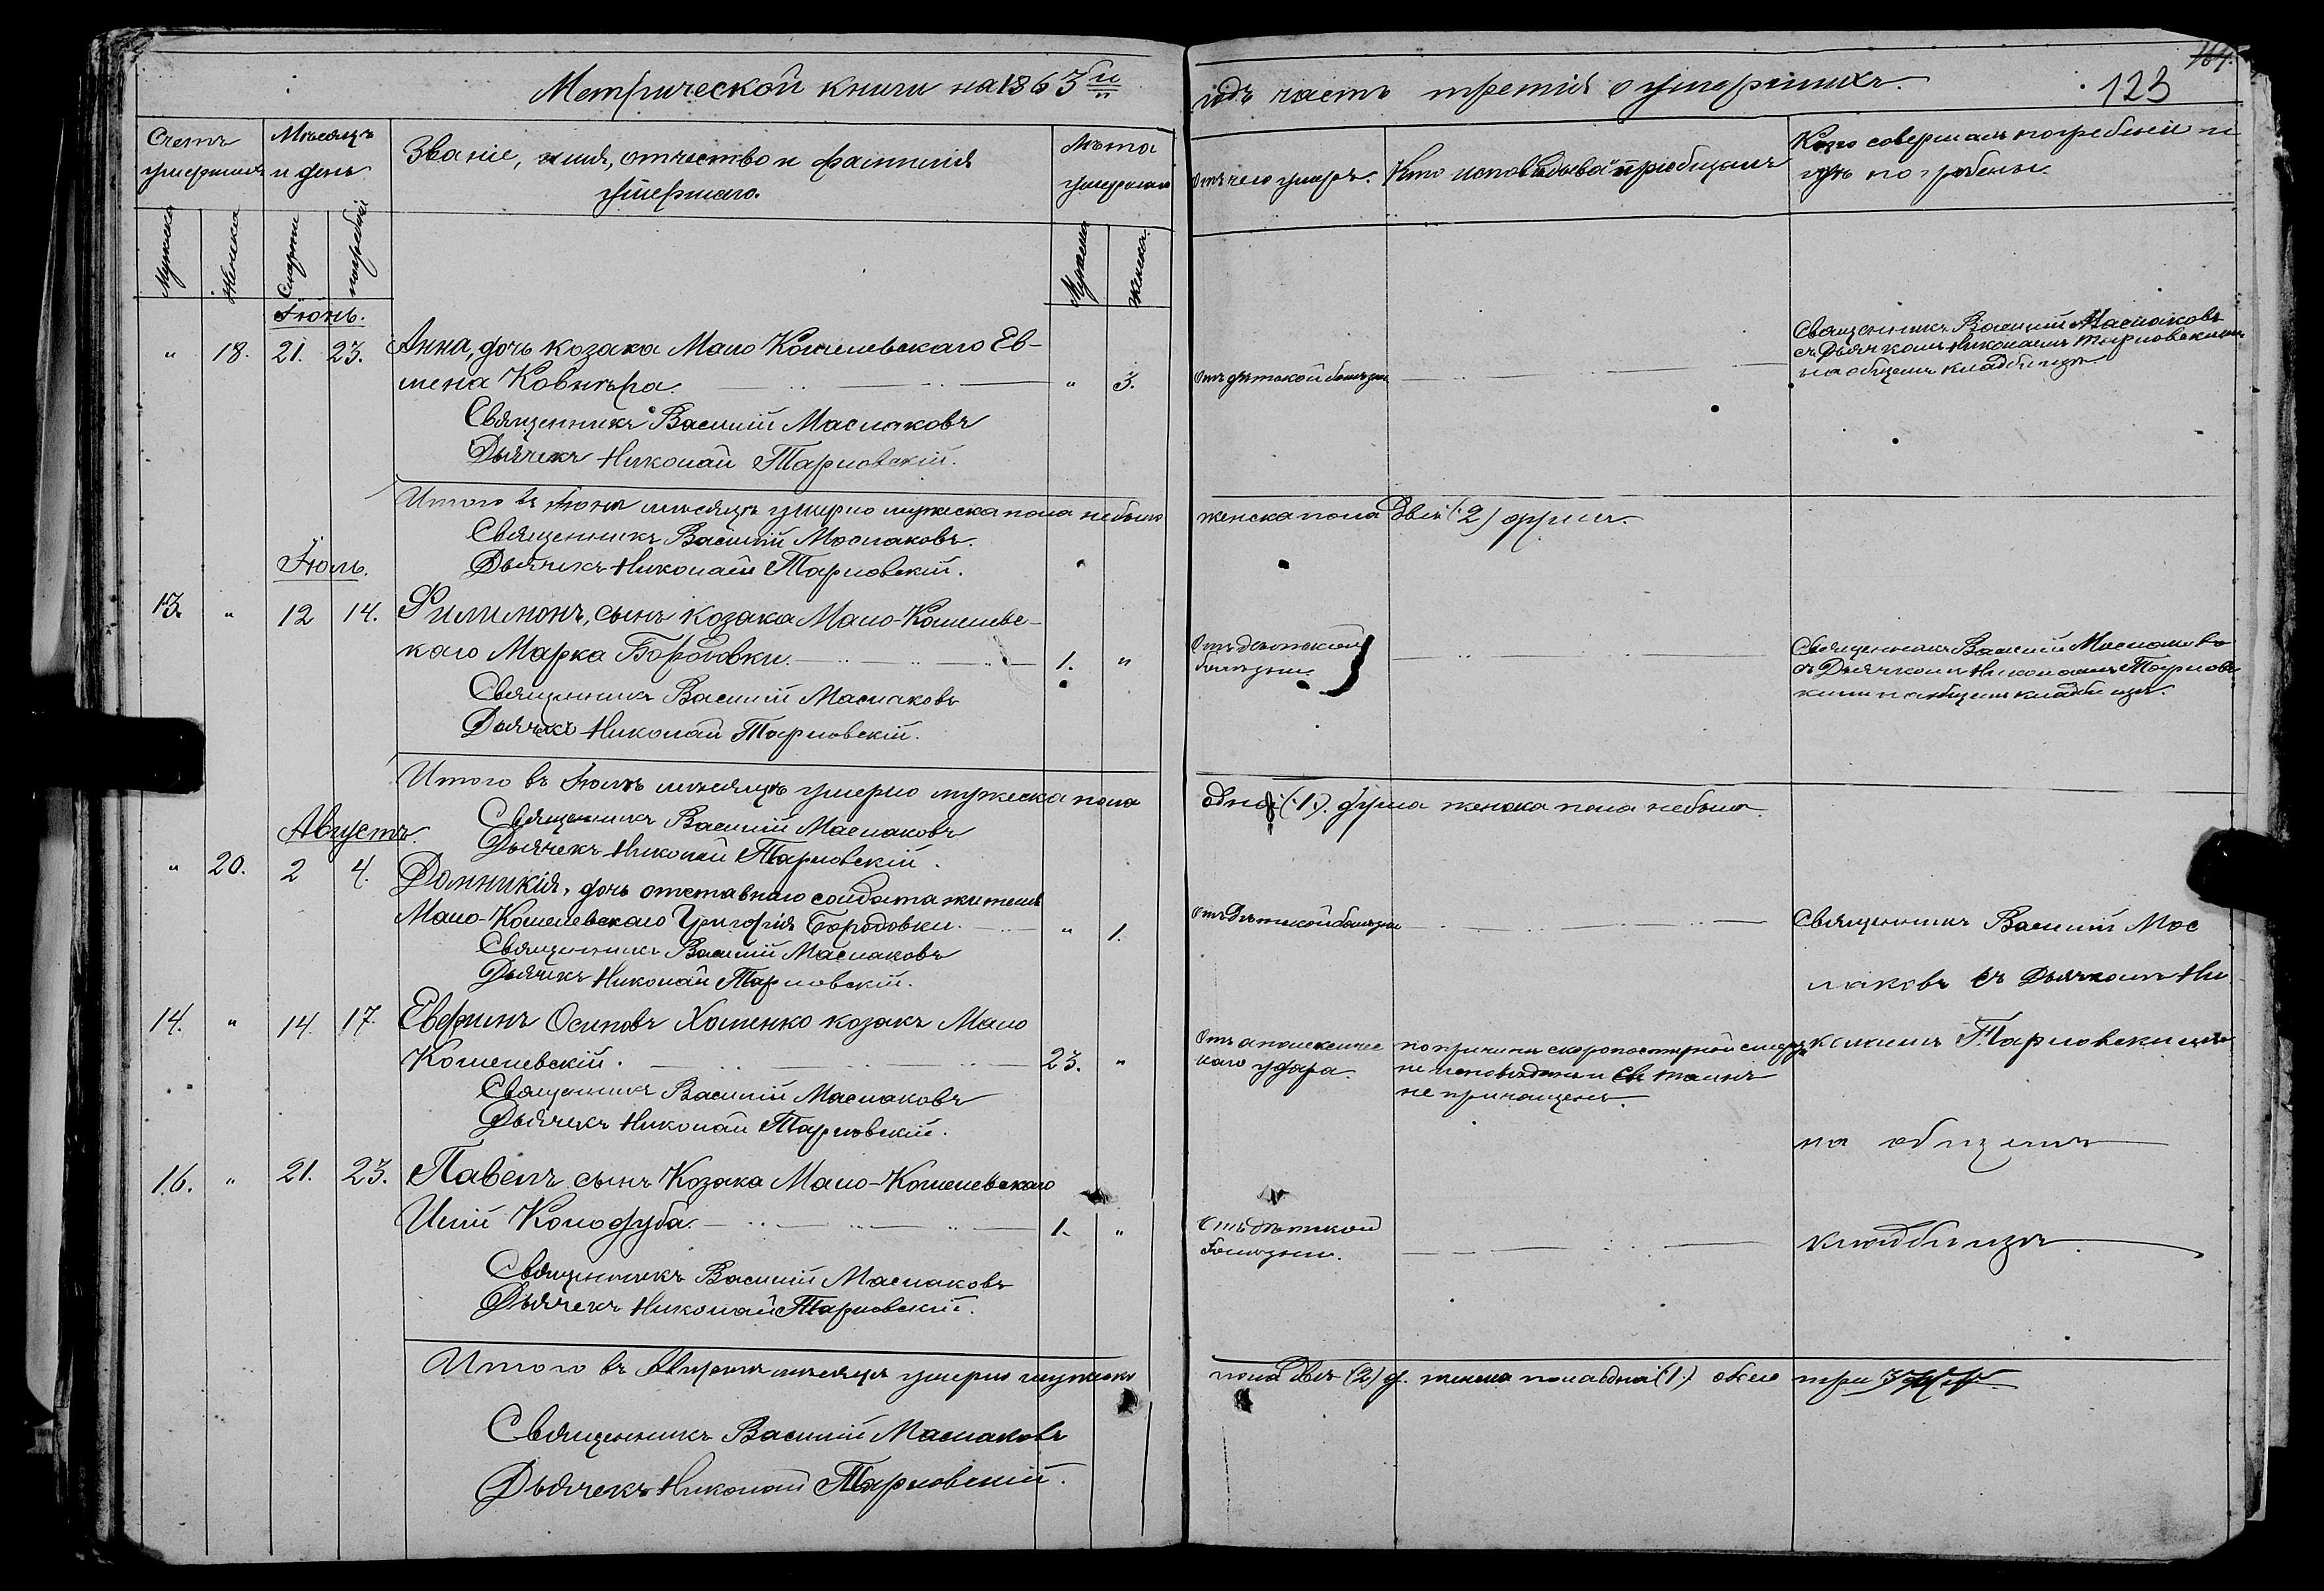 Метрической книги на 1863й
годъ часть третія о умершихъ.
164.
123
Счетъ умершихъ
Мѣсяцъ и день
Званіе, имя, отчество и фамилія
умершаго.
Лѣта умершаго
Отъ чего умеръ.
Кто исповѣдывалъ и пріобщалъ
Кто совершалъ погребеніе и
гдѣ погребены
Мужеска
Женска
Смерти
погребенія
Мужеска
Женска.
Іюнь.
" 18. 21. 23. Анна, дочь козака Мало Кошелевскаго Ев-
мена Ковнѣра. " 3.
Отъ дѣтской болѣзни
Священникъ Василій Маслаковъ
съ Дьячкомъ Николаемъ Тарновскимъ
на общемъ кладбищѣ
Священникъ Василій Маслаковъ
Дьячекъ Николай Тарновскій.
Итого въ Іюнѣ мѣсяцѣ умерло мужеска пола небыло
женска пола двѣ (2) души.
Священникъ Василій Маслаковъ.
Дьячекъ Николай Тарновскій.
Іюль.
13. " 12 14. Филимонъ, сынъ козака Мало-Кошелевс-
каго Марка Бородовки. 1. "
Отъ дѣтской
болѣзни.
Священникъ Василій Маслаковъ
съ Дьячкомъ Николаемъ Тарновс
кимъ на общемъ кладбищѣ.
Священникъ Василій Маслаковъ
Дьячекъ Николай Тарновскій.
Итого въ Іюлѣ мѣсяцѣ умерло мужеска пола
одна (1). душа женска пола небыло.
Священникъ Василій Маслаковъ
Августъ.
Дьячекъ Николай Тарновскій.
" 20. 2 4. Домникія, дочь отставнаго солдата жителя
Мало-Кошелевскаго Григорія Бородовки. " 1.
Отъ дѣтской болѣзни
Священникъ Василій Мас
Священникъ Василій Маслаковъ
Дьячекъ Николай Тарновскій.
лаковъ съ Дьячкомъ Ни
14. " 14. 17. Евфимъ Осиповъ Хоменко козакъ Мало
Кошелевскій. 23. "
Отъ апоплексичес
каго удара.
по причинѣ скоропостижной смерти
не исповѣданъ и Св. Таинъ
не пріпащенъ.
колаемъ Тарновскимъ
Священникъ Василій Маслаковъ
Дьячекъ Николай Тарновскій.
на общемъ
16. " 21. 23. Павелъ сынъ Козака Мало-Кошелевскаго
Иліи Колодуба. 1. "
Отъ дѣтской
болѣзни.
кладбищѣ.
Священникъ Василій Маслаковъ
Дьячекъ Николай Тарновскій.
Итого въ Августѣ мѣсяцѣ умерло мужеска
пола двѣ (2) д. женска пола одна (1) обего три
Священникъ Василій Маслаковъ
Дьячекъ Николай Тарновскій.